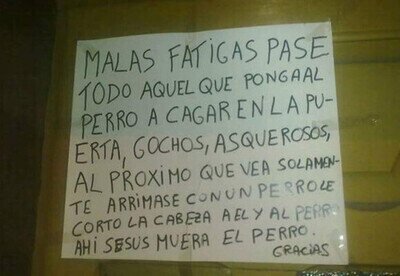 MALAS FATIGAS PASE
TODO AQUEL QUE PONGA AL
PERRO A CAGAR EN LA PU-
ERTA, GOCHOS, ASQUEROSOS,
AL PROXIMO QUE VEA SOLAMEN-
TE ARRIMASE CON UN PERRO LE
CORTO LA CABEZA A EL Y AL PERRO
AHI SESUS MUERA EL PERRO.
GRACIAS